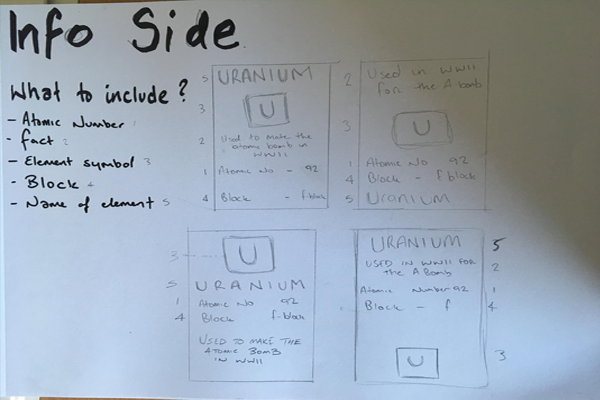 Info Side
What to include?
- Atomic Number 1
- fact 2
- Element symbol 3
- Block 4
- Name of element 5
5 URANIUM
3 U
2 Used to make the
atomic bomb in
WWII
1 Atomic No - 92
4 Block - f-block
2 Used in WWII
for the A bomb
3 U
1 Atomic No 92
4 Block - f block
5 URANIUM
3 U
5 URANIUM
1 Atomic No 92
4 Block f-block
USED TO MAKE THE
ATOMIC BOMB
IN WWII
URANIUM 5
USED IN WWII FOR
the A Bomb 2
Atomic Number 92 1
Block - f 4
U 3